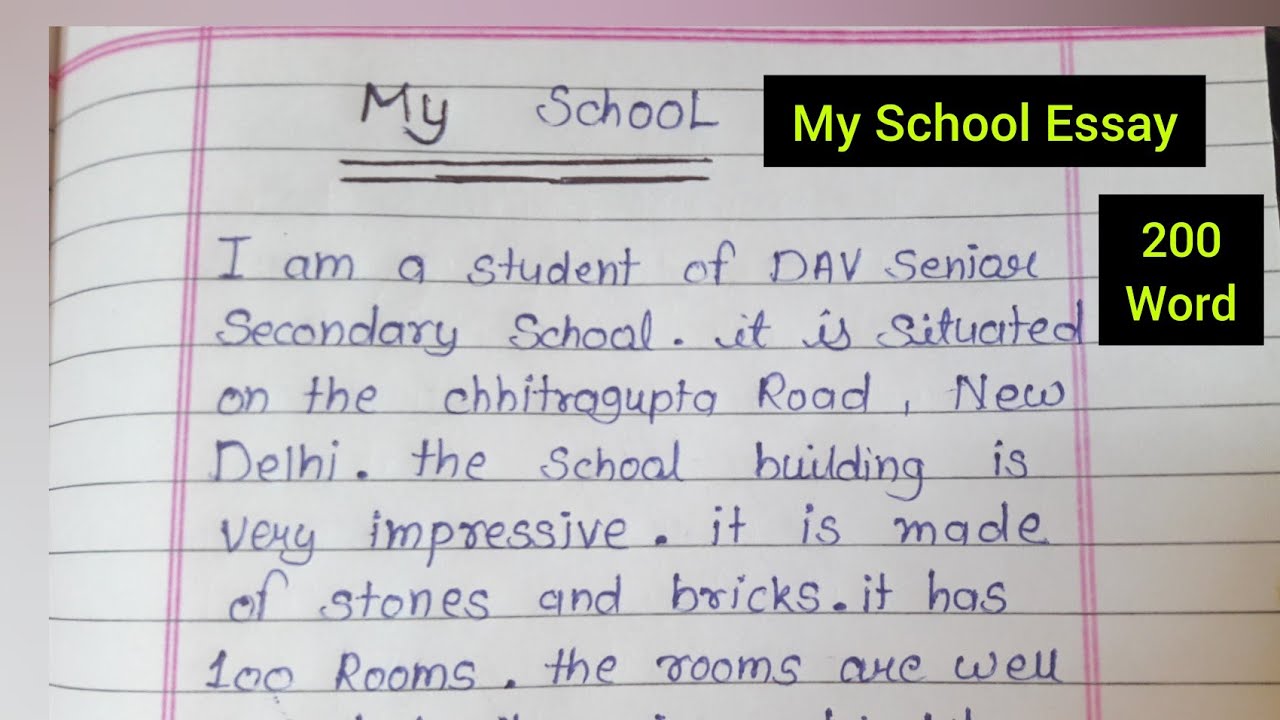 My School
My School Essay
200
Word
I am a student of DAV Senior
Secondary School. it is situated
on the chhitragupta Road, New
Delhi. the school building is
very impressive. it is made
of stones and bricks. it has
100 Rooms. the rooms are well